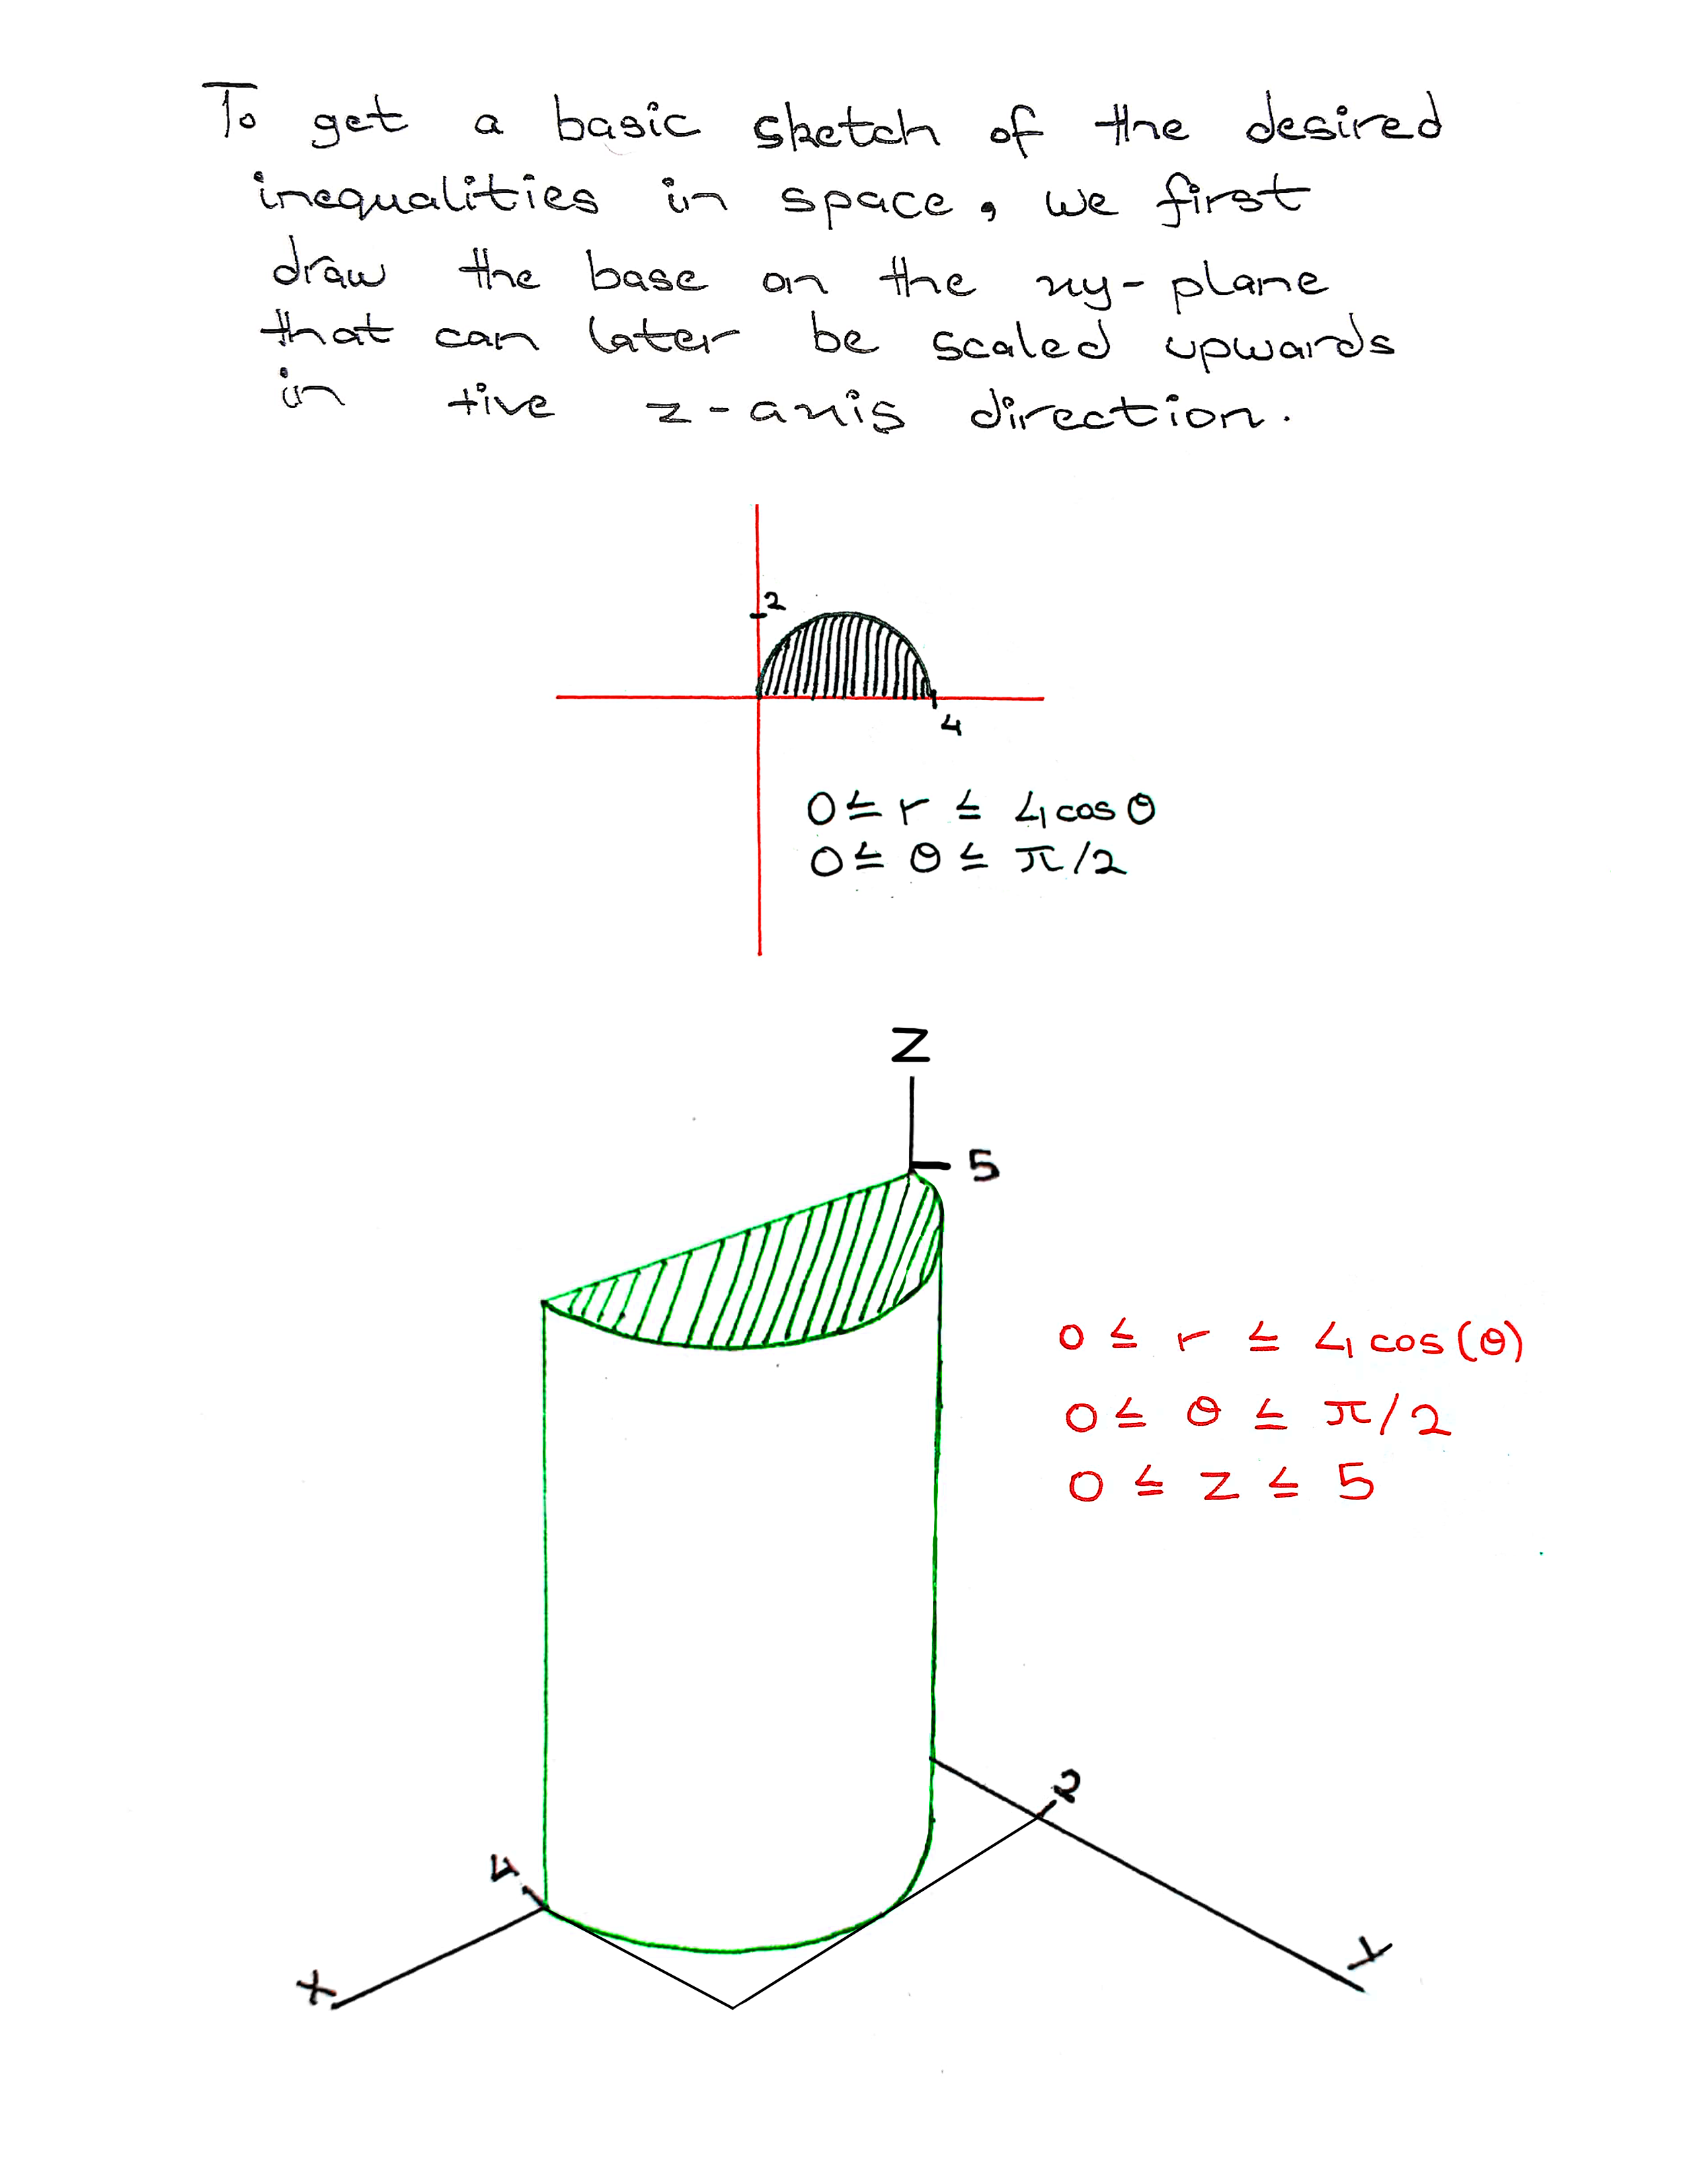 To get a basic sketch of the desired
inequalities in space, we first
draw the base on the xy-plane
that can later be scaled upwards
in +ive z-axis direction.
2
4
0 ≤ r ≤ 4cosθ
0 ≤ θ ≤ π/2
Z
5
0 ≤ r ≤ 4cos(θ)
0 ≤ θ ≤ π/2
0 ≤ z ≤ 5
2
4
Y
X